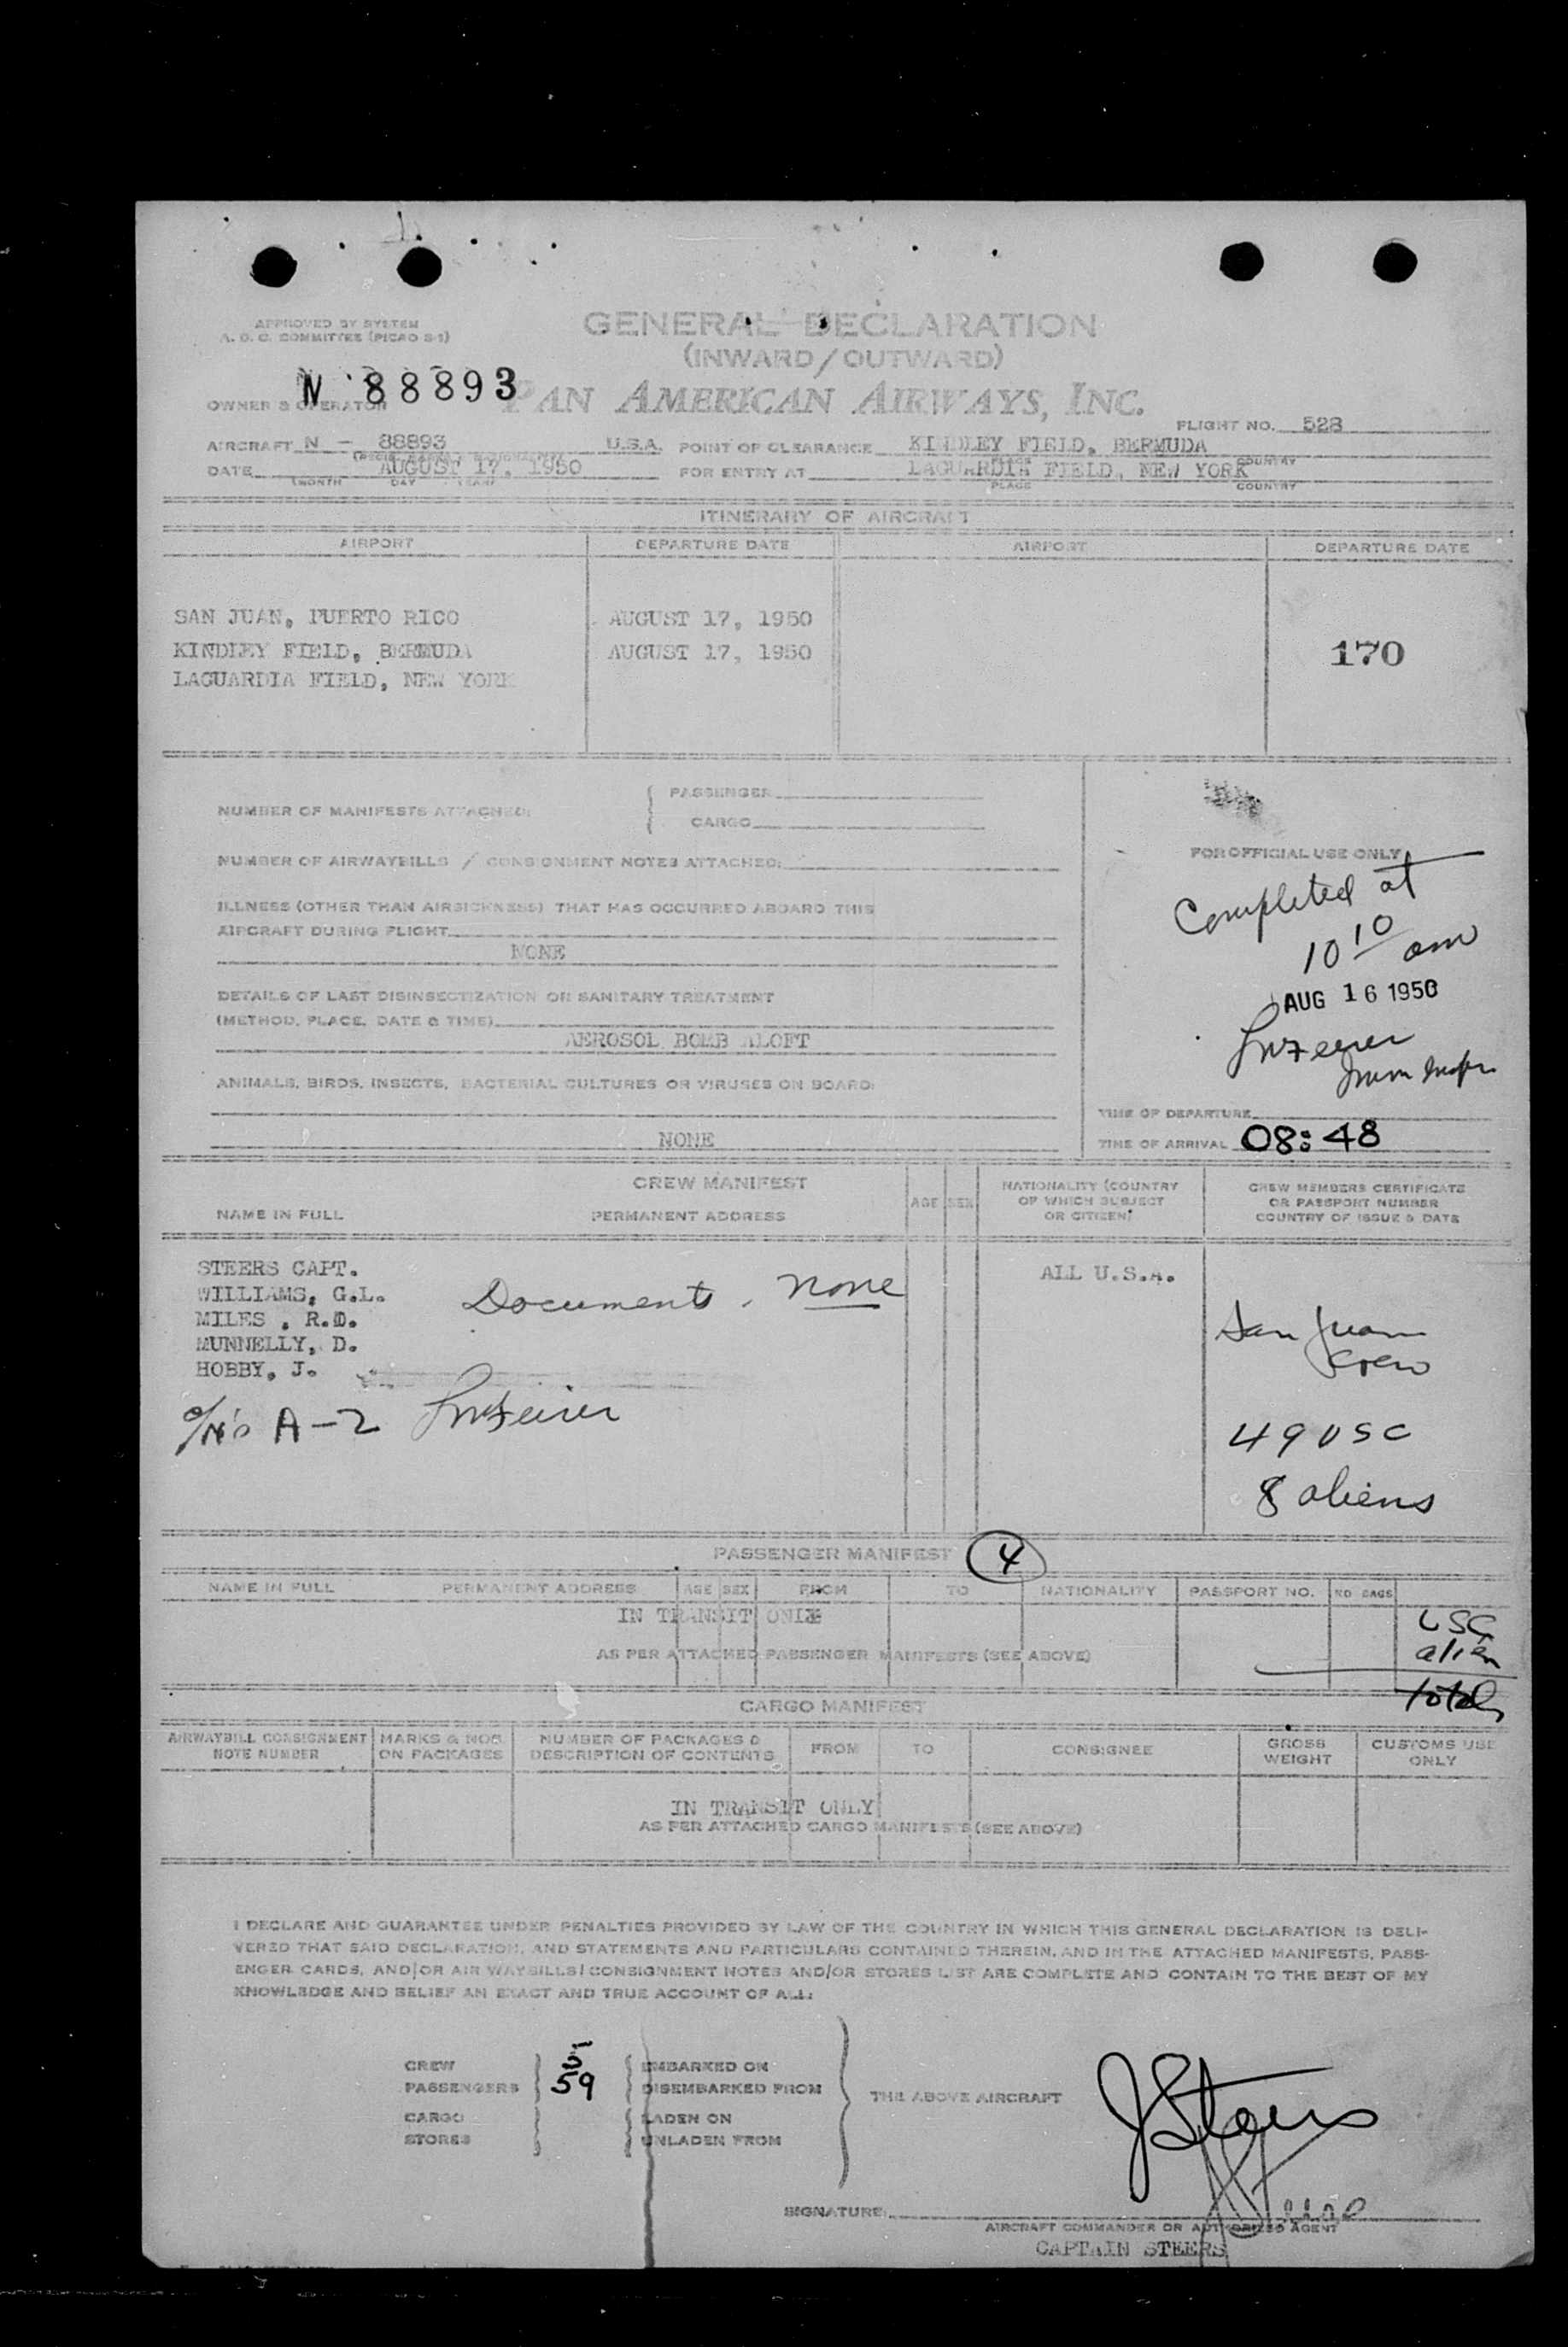 APPROVED BY SYSTEM
A. O. C. COMMITTEE (PICAO S-1)
GENERAL DECLARATION
(INWARD/OUTWARD)
N 88893
OWNER & OPERATOR PAN AMERICAN AIRWAYS, INC.
FLIGHT NO. 528
AIRCRAFT N - 88893 U.S.A. POINT OF CLEARANCE KINDLEY FIELD, BERMUDA
PLACE COUNTRY
DATE AUGUST 17, 1950 FOR ENTRY AT LAGUARDIA FIELD, NEW YORK
(MONTH DAY YEAR) PLACE COUNTRY
ITINERARY OF AIRCRAFT
AIRPORT DEPARTURE DATE AIRPORT DEPARTURE DATE
SAN JUAN, PUERTO RICO AUGUST 17, 1950
KINDLEY FIELD, BERMUDA AUGUST 17, 1950 170
LAGUARDIA FIELD, NEW YORK
NUMBER OF MANIFESTS ATTACHED: PASSENGER
CARGO
NUMBER OF AIRWAYBILLS / CONSIGNMENT NOTES ATTACHED:
ILLNESS (OTHER THAN AIRSICKNESS) THAT HAS OCCURRED ABOARD THIS
AIRCRAFT DURING FLIGHT
NONE
DETAILS OF LAST DISINSECTIZATION OR SANITARY TREATMENT
(METHOD, PLACE, DATE & TIME)
AEROSOL BOMB ALOFT
ANIMALS, BIRDS, INSECTS, BACTERIAL CULTURES OR VIRUSES ON BOARD:
NONE
FOR OFFICIAL USE ONLY
Completed at
10 10 am
AUG 16 1950
TIME OF DEPARTURE
TIME OF ARRIVAL 08:48
CREW MANIFEST
NAME IN FULL PERMANENT ADDRESS AGE SEX NATIONALITY (COUNTRY OF WHICH SUBJECT OR CITIZEN) CREW MEMBERS CERTIFICATE OR PASSPORT NUMBER COUNTRY OF ISSUE & DATE
STEERS CAPT. ALL U.S.A.
WILLIAMS, G.L.
MILES , R.D.
MUNNELLY, D.
HOBBY, J.
Documents. none
San Juan
Crew
A-2
49 USC
8 aliens
PASSENGER MANIFEST 4
NAME IN FULL PERMANENT ADDRESS AGE SEX FROM TO NATIONALITY PASSPORT NO. NO BAGS
IN TRANSIT ONLY
USC
AS PER ATTACHED PASSENGER MANIFESTS (SEE ABOVE)
alien
total
CARGO MANIFEST
AIRWAYBILL CONSIGNMENT NOTE NUMBER MARKS & NOS. ON PACKAGES NUMBER OF PACKAGES & DESCRIPTION OF CONTENTS FROM TO CONSIGNEE GROSS WEIGHT CUSTOMS USE ONLY
IN TRANSIT ONLY
AS PER ATTACHED CARGO MANIFESTS (SEE ABOVE)
I DECLARE AND GUARANTEE UNDER PENALTIES PROVIDED BY LAW OF THE COUNTRY IN WHICH THIS GENERAL DECLARATION IS DELI-
VERED THAT SAID DECLARATION, AND STATEMENTS AND PARTICULARS CONTAINED THEREIN, AND IN THE ATTACHED MANIFESTS, PASS-
ENGER CARDS, AND/OR AIR WAYBILLS/CONSIGNMENT NOTES AND/OR STORES LIST ARE COMPLETE AND CONTAIN TO THE BEST OF MY
KNOWLEDGE AND BELIEF AN EXACT AND TRUE ACCOUNT OF ALL:
CREW 5 EMBARKED ON
PASSENGERS 59 DISEMBARKED FROM
THE ABOVE AIRCRAFT
CARGO LADEN ON
STORES UNLADEN FROM
J Steers
SIGNATURE:
AIRCRAFT COMMANDER OR AUTHORIZED AGENT
CAPTAIN STEERS